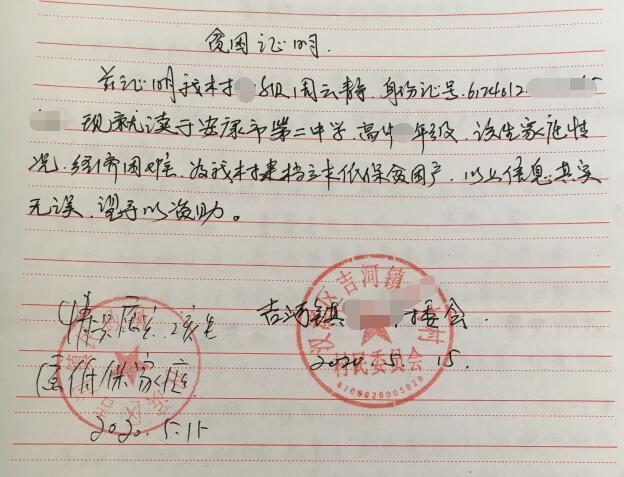 贫困证明.
兹证明我村 组周云静.身份证号.6124012
现就读于安康市第二中学,高中 年级.该生家庭情
况.经济困难.为我村建档立卡低保贫困户.以上信息真实
无误.望予以资助。
吉河镇 村委会.
2020.5.15.
汉滨区吉河镇 村
村民委员会
6109020005829
情况属实.该生
低保家庭.
2020.5.15